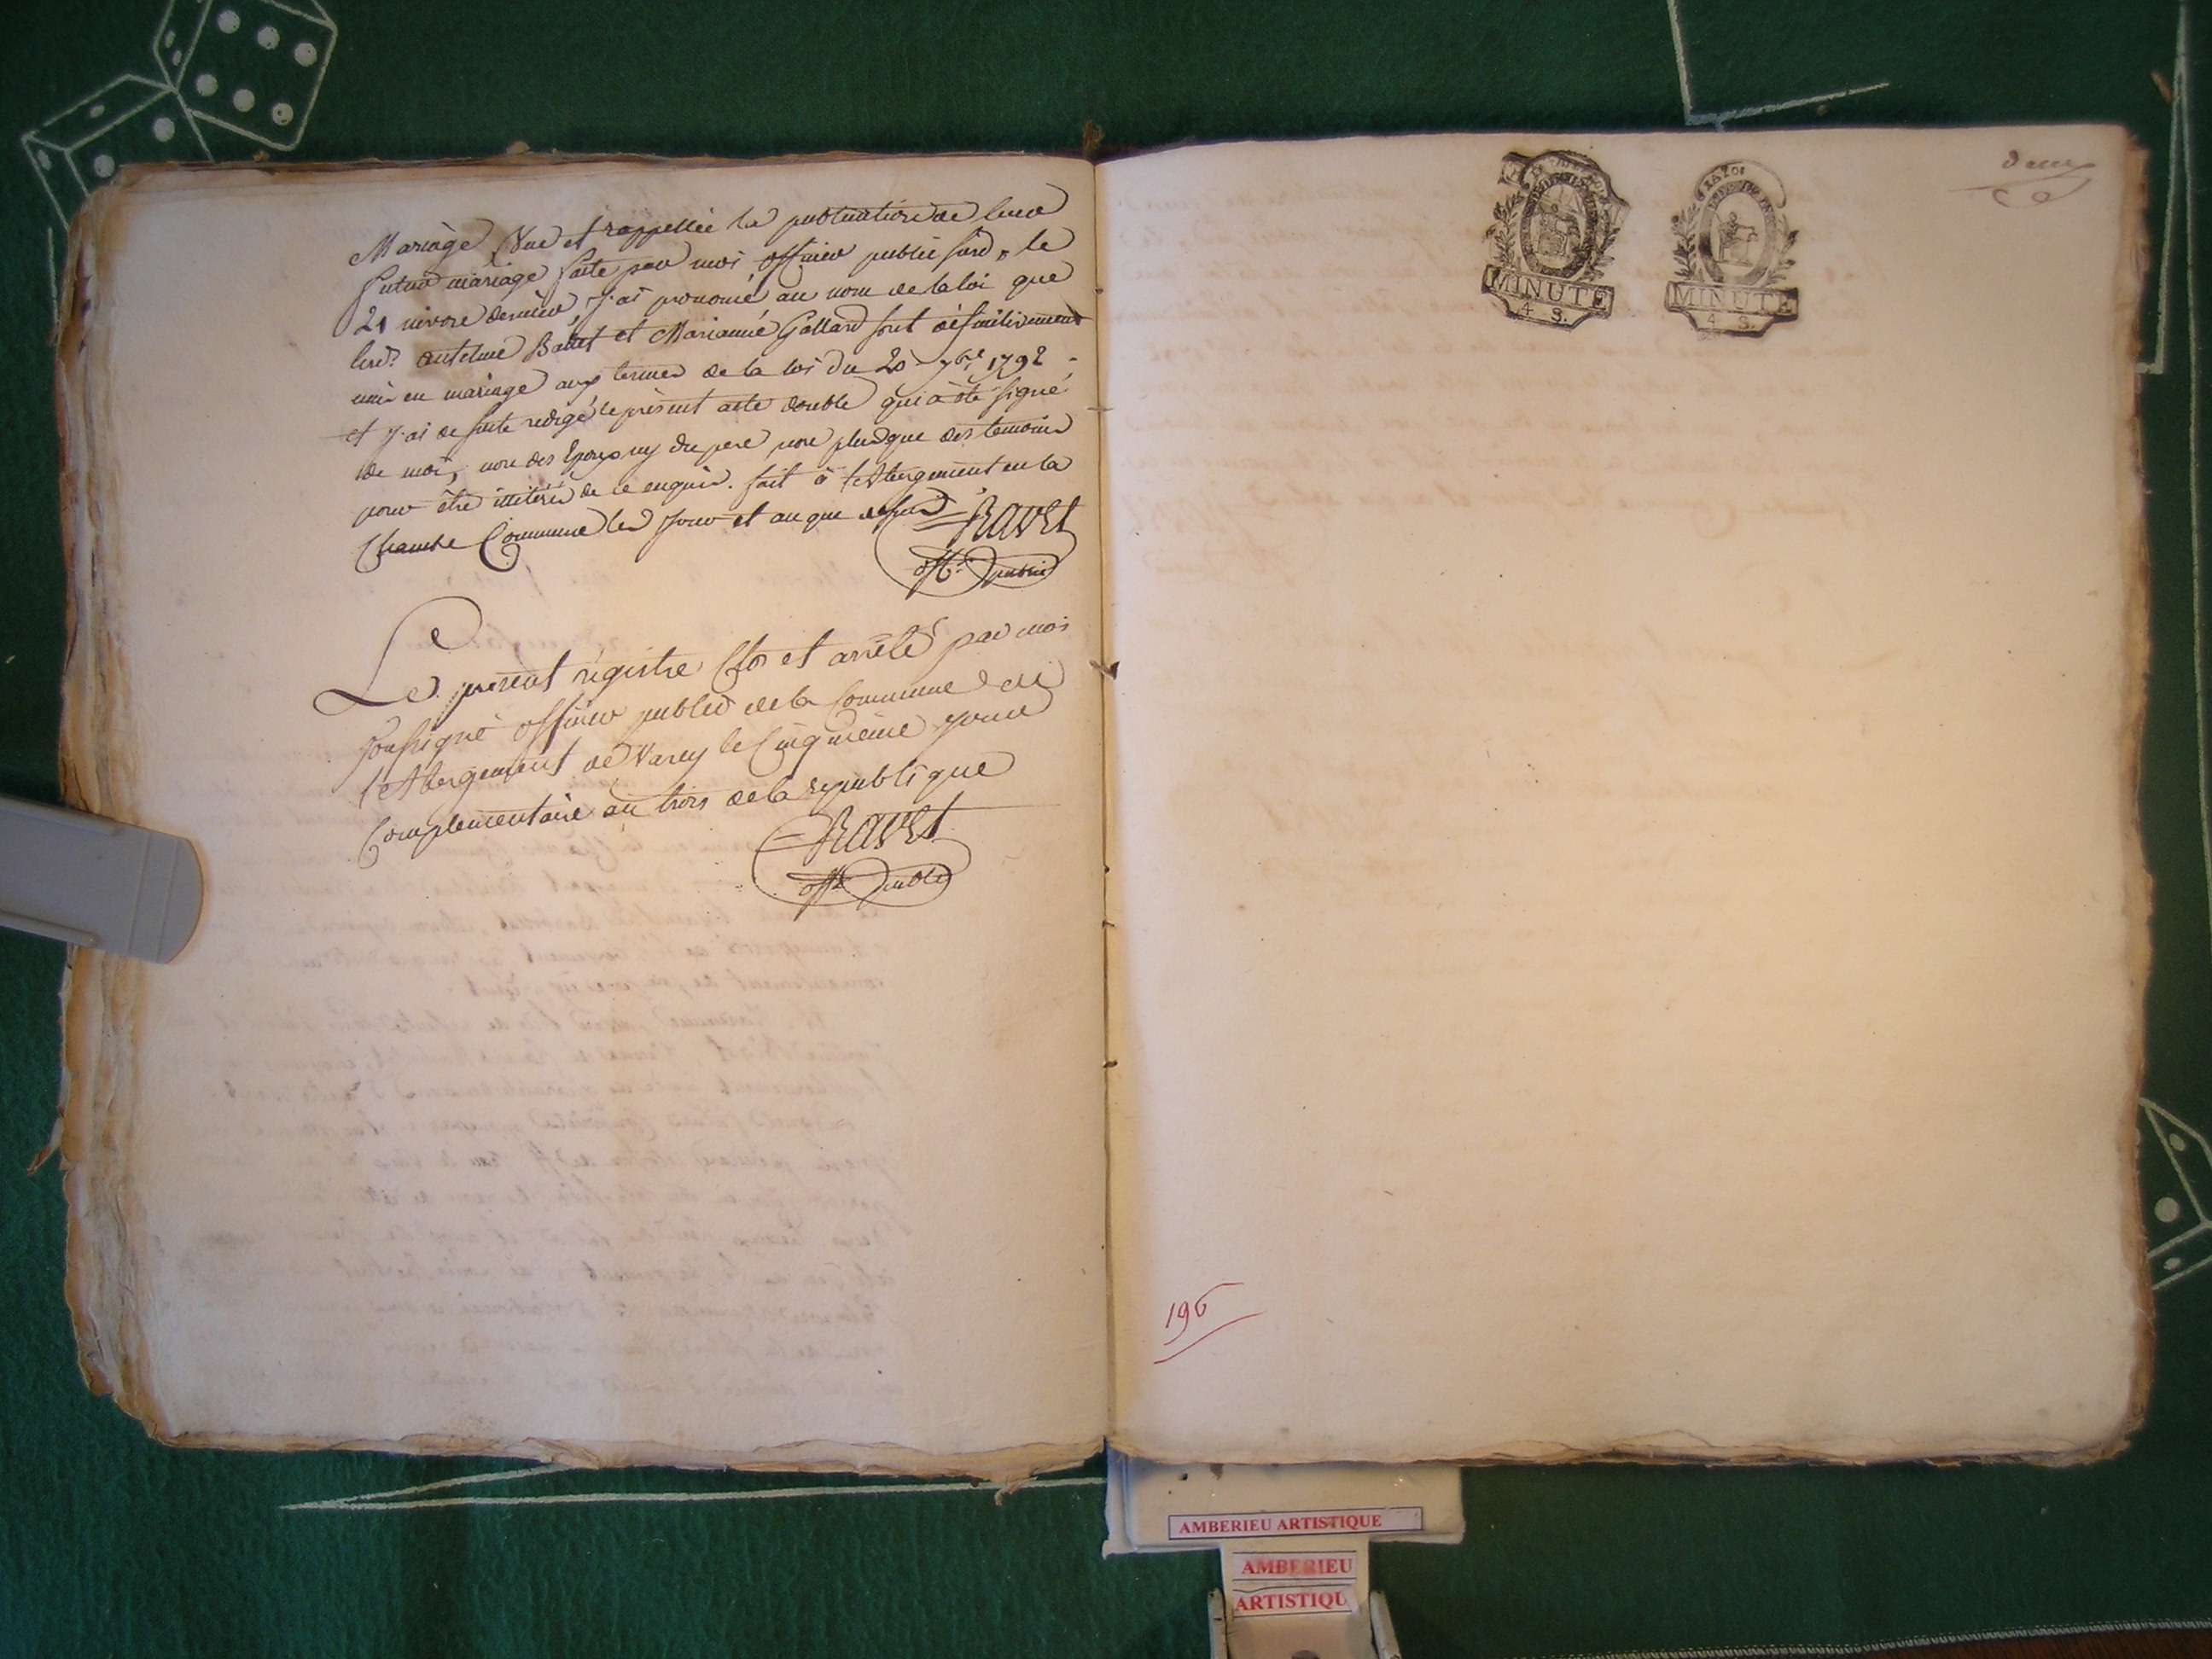 Mariage Vue et rappellée la publication de leur
futur mariage faite par moi officier public susd. le
21 nivose dernier, J'ai prononcé au nom de la loi que
lesd. anthelme Ballet et Marianne Gallard sont définitivement
unis en mariage aux termes de la loi du 20 7bre 1792.
et J'ai de suite redigé le présent acte double qui a été signé
de moi, non des Epoux ny du pere non plus que des temoins
pour être illiterés de ce enquis. fait à l'Abergement en la
Chambe Commune les Jour et an que dessus
Ravet
offr. public
Le présent régistre Clos et arrêté par moi
soussigné officier public de la Commune de
l'Abergement de Varey le Cinquieme jour
Complementaire an trois de la republique
Ravet
offr. public
deux
LA LOI
MINUTE
4 S.
MINUTE
4 S.
196
AMBERIEU ARTISTIQUE
AMBERIEU
ARTISTIQU